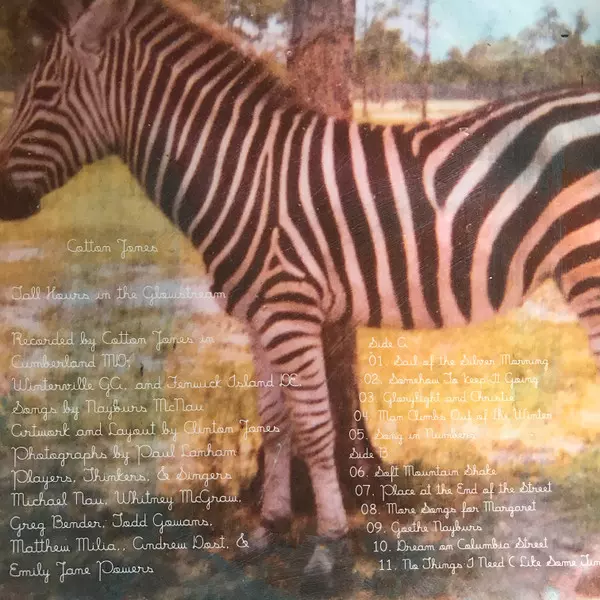 Cotton Jones
Tall Hours in the Glowstream
Recorded by Cotton Jones in
Cumberland MD;
Winterville GA, and Fenwick Island DE.
Songs by Nayburs McNau
Artwork and Layout by Clinton Jones
Photographs by Paul Lanham
Players, Thinkers, & Singers
Michael Nau, Whitney McGraw,
Greg Bender, Todd Gowans,
Matthew Milia., Andrew Dost, &
Emily Jane Powers
Side A
01. Sail of the Silver Morning
02. Somehow To Keep It Going
03 Glorylight and Christie
04 Man Climbs Out of the Winter
05. Song in Numbers
Side B
06. Soft Mountain Shake
07. Place at the End of the Street
08. More Songs for Margaret
09. Goethe Nayburs
10. Dream on Columbia Street
11. No Things I Need ( Like Some Tim